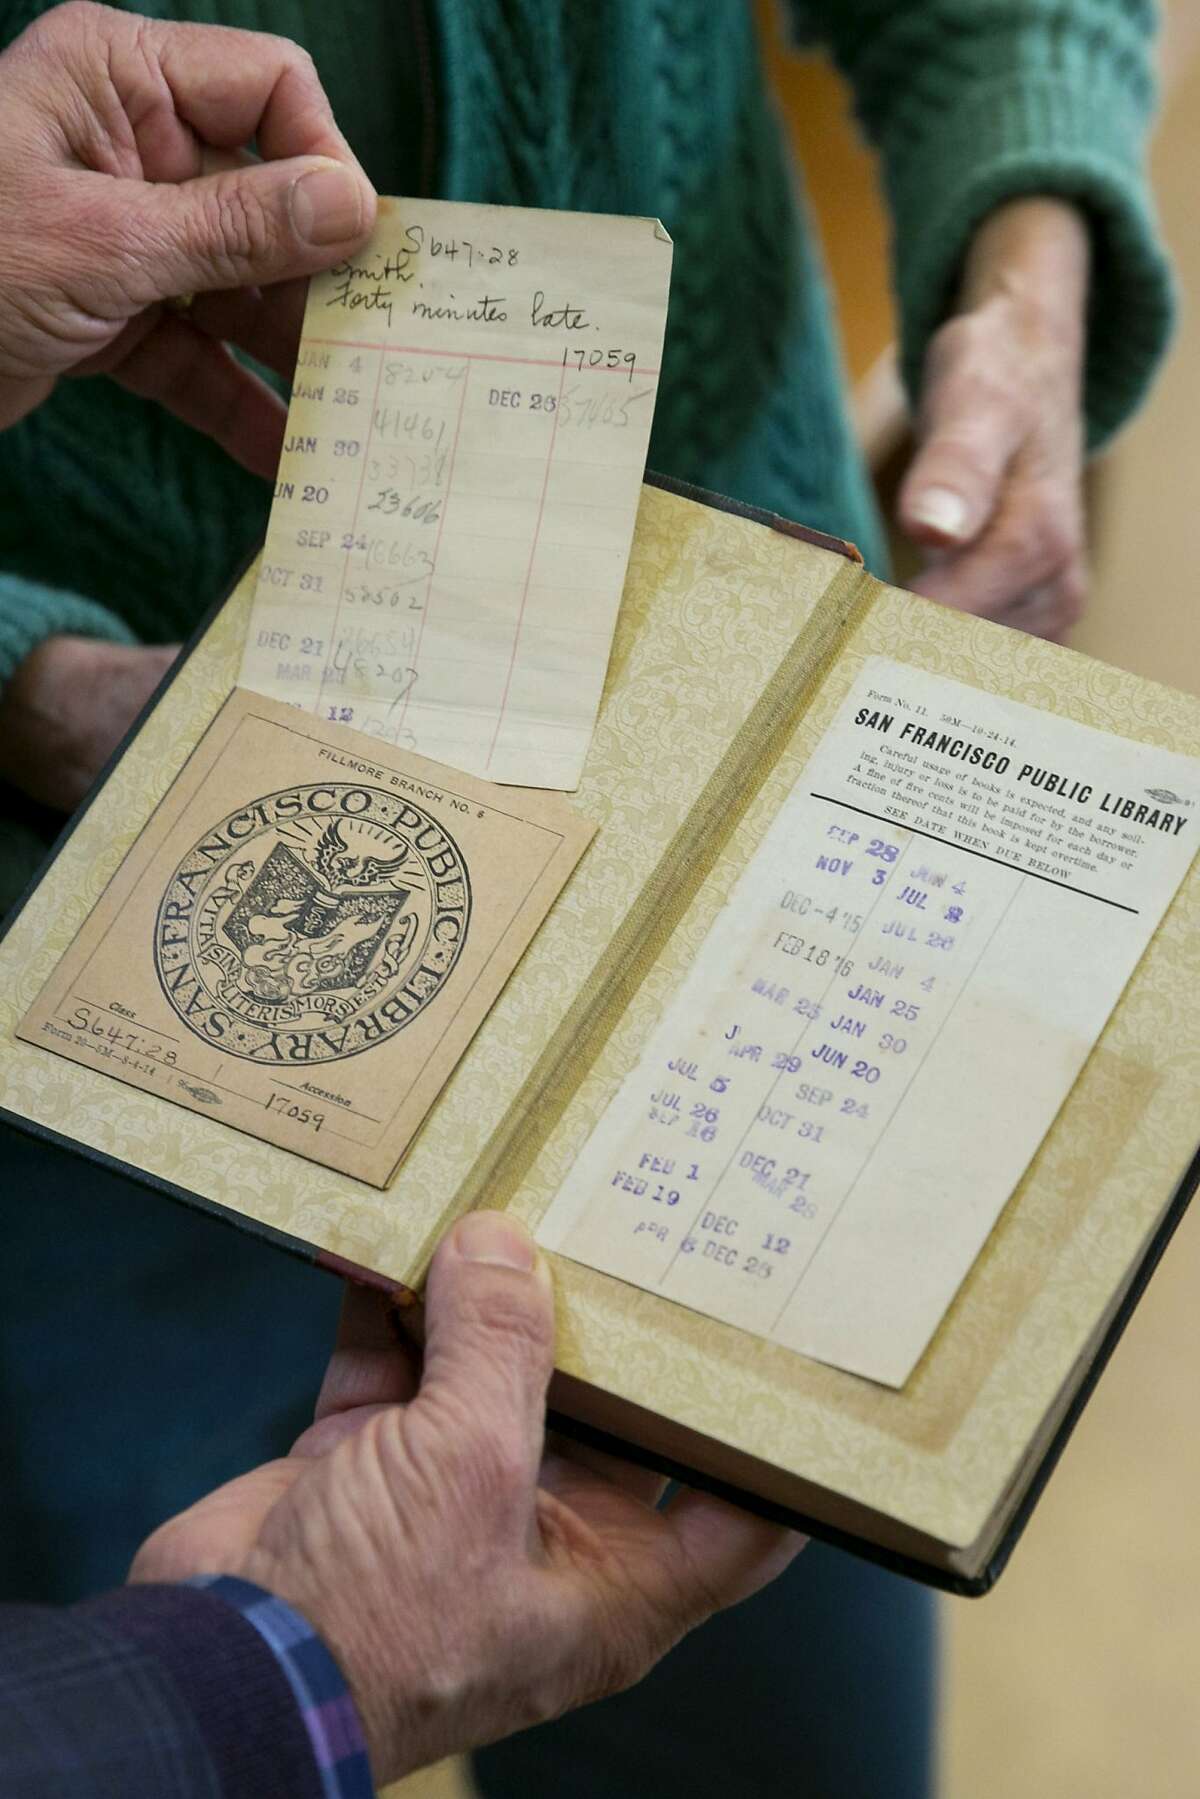 S647.28
Smith
Forty minutes late.
17059
JAN 4
JAN 25
JAN 30
UN 20
SEP 24
OCT 31
DEC 21
MAR
12
8254
41461
33731
23606
58502
48207
DEC 26
FILLMORE BRANCH NO. 6
SAN·FRANCISCO·PUBLIC·LIBRARY·
VITA SINE LITERIS MORS EST
Class
S647.28
Form 20—5M—8-4-14
Accession
17059
Form No. 11. 50M—10-24-14.
SAN FRANCISCO PUBLIC LIBRARY
Careful usage of books is expected, and any soil-
ing, injury or loss is to be paid for by the borrower.
A fine of five cents will be imposed for each day or
fraction thereof that this book is kept overtime.
SEE DATE WHEN DUE BELOW
SEP 28
NOV 3
DEC -4 '15
FEB 18 '16
MAR 25
APR 29
JUL 5
JUL 26
SEP 16
FEB 1
FEB 19
APR 6
JUN 4
JUL 8
JUL 26
JAN 4
JAN 25
JAN 30
JUN 20
SEP 24
OCT 31
DEC 21
MAR 28
DEC 12
DEC 26